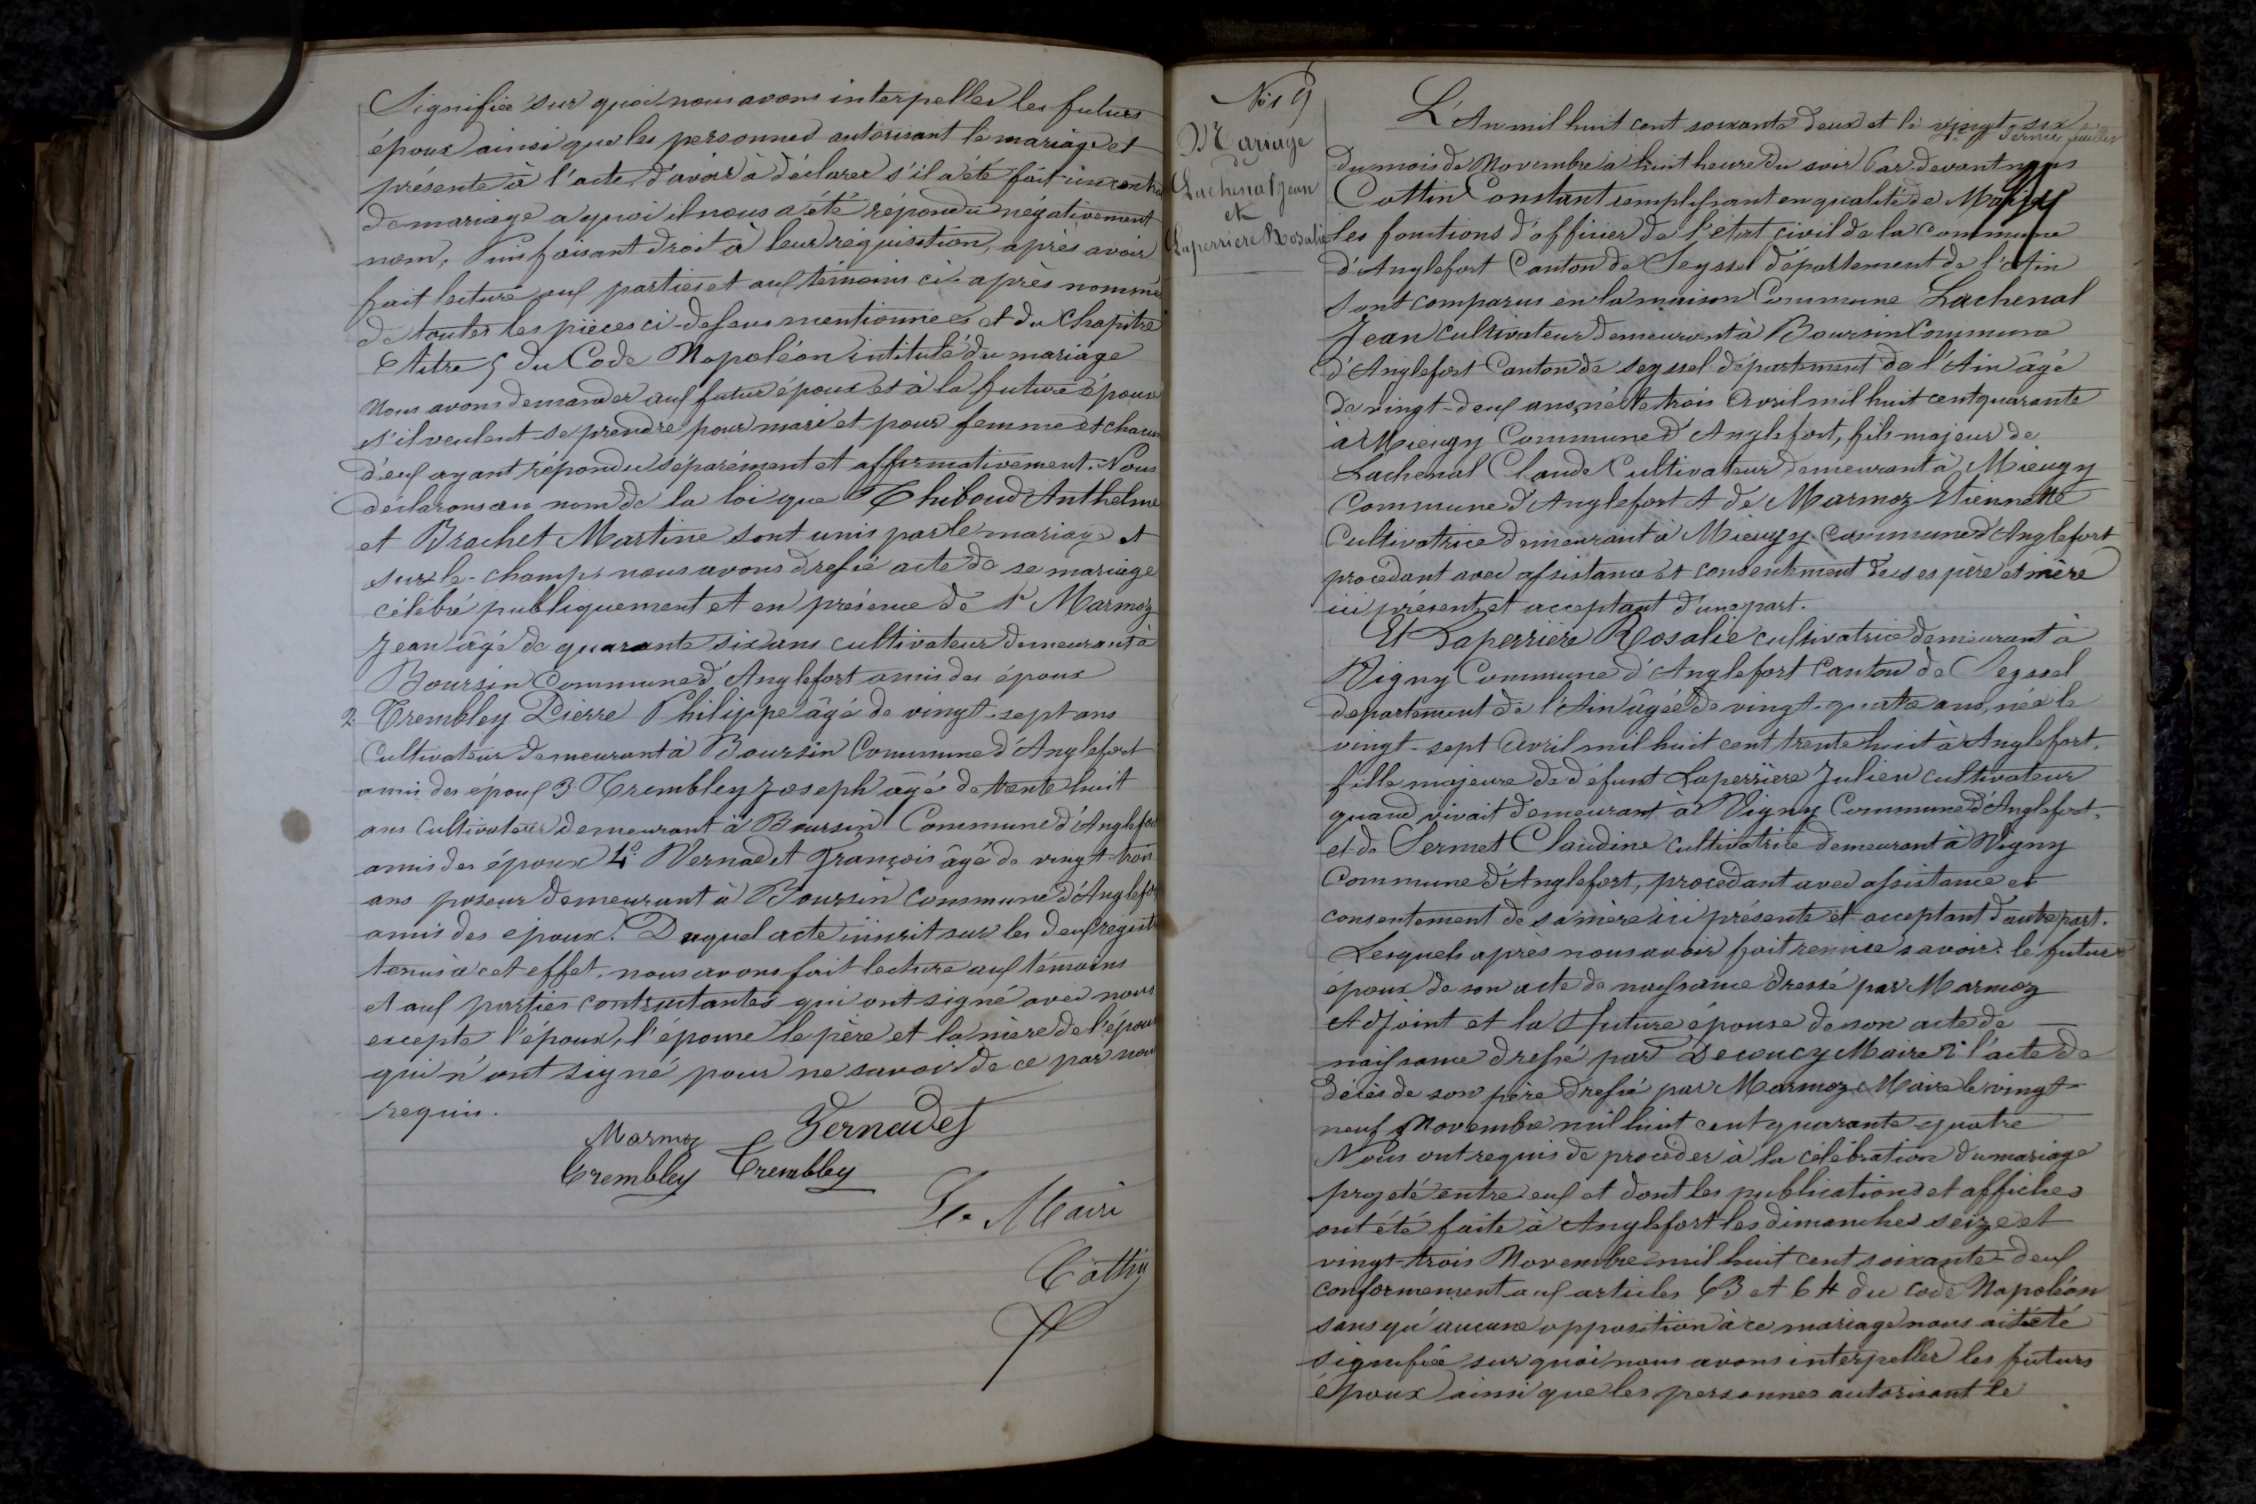 Signifiée sur quoi nous avons interpeller les futurs
époux ainsi que les personnes autorisant le mariage et
présente à l'acte, d'avoir à déclarer s'il a été fait un contrat
de mariage a quoi il nous a été répondu négativement
nom, faisant droit à leur réquisition, après avoir
fait lecture aux parties et aux témoins ci-après nommé
de toutes les pièces ci-dessus mentionnées et du Chapitre
6 titre 5 du Code Napoléon intitulé du mariage
Nous avons demander aux futur époux et à la future épouse
s'il veulent se prendre pour mari et pour femme et chacun
d'eux ayant répondu séparément et affirmativement. Nous
déclarons au nom de la loi que Thiboud Anthelme
et Brachet Martine sont unis par le mariage et
sur le-champ nous avons dressé acte de se mariage
célébré publiquement et en présence de 1° Marmoz
Jean âgé de quarante six ans cultivateur demeurant à
Boursin Commune d'Anglefort amis des époux
2. Trembley Pierre Philippe âgé de vingt-sept ans
Cultivateur demeurant à Boursin Commune d'Anglefort
amis des époux 3 Trembley Joseph âgé de trente huit
ans Cultivateur demeurant à Boursin Commune d'Anglefort
amis des époux 4° Vernadet François âgé de vingt-trois
ans poseur demeurant à Boursin Commune d'Anglefort
amis des époux. Duquel acte inscrit sur les deux registres
tenus à cet effet, nous avons fait lecture aux témoins
et aux parties contractantes qui ont signé avec nous
excepté l'époux, l'épouse le père et la mère de l'époux
qui n'ont signé pour ne savoir de ce par nous
requis.
Marmoz Vernadet
Trembley Trembley
Le Maire
Cottin
No 19
Mariage
de
Lachenal Jean
et
Laperriere Rosalie
L'An mil huit cent soixante deux et le vingt-six
dernier feuillet
du mois de Novembre à huit heure du soir Par-devant nous
Cottin Constant remplissant en qualité de Maire
les fonctions d'officier de l'état civil de la commune
d'Anglefort Canton de Seyssel département de l'Ain
sont comparus en la maison Commune Lachenal
Jean cultivateur demeurant à Boursin Commune
d'Anglefort Canton de Seyssel département de l'Ain âgé
de vingt-deux ans, né le trois Avril mil huit cent quarante
à Mieugy Commune d'Anglefort, fils majeur de
Lachenal Claude Cultivateur demeurant à Mieugy
Commune d'Anglefort et de Marmoz Etiennette
Cultivatrice demeurant à Mieugy Commune d'Anglefort
procédant avec assistance et consentement de ses père et mère
ici présent et acceptant d'une part.
Et Laperrière Rosalie cultivatrice demeurant à
Vigny Commune d'Anglefort Canton de Seyssel
département de l'Ain âgée de vingt-quatre ans, née le
vingt-sept Avril mil huit cent trente huit à Anglefort,
fille majeure de défunt Laperrière Julien cultivateur
quand vivait demeurant à Vigny Commune d'Anglefort,
et de Sermet Claudine cultivatrice demeurant à Vigny
Commune d'Anglefort, procédant avec assistance et
consentement de sa mère ici présente et acceptant d'autre part.
Lesquels après nous avoir fait remise savoir: le futur
époux de son acte de naissance dressé par Marmoz
Adjoint et la future épouse de son acte de
naissance dressé par Decoucy Maire 2° l'acte de
décès de son père dressé par Marmoz Maire le vingt
neuf Novembre mil huit cent quarante quatre
Nous ont requis de procéder à la célébration du mariage
projeté entre eux et dont les publications et affiches
ont été faite à Anglefort les dimanches seize et
vingt-trois Novembre mil huit cent soixante-deux
conformement aux articles 63 et 64 du Code Napoléon
sans qu'aucune opposition à ce mariage nous ait été
signifiée sur quoi nous avons interpeller les futurs
époux ainsi que les personnes autorisant le